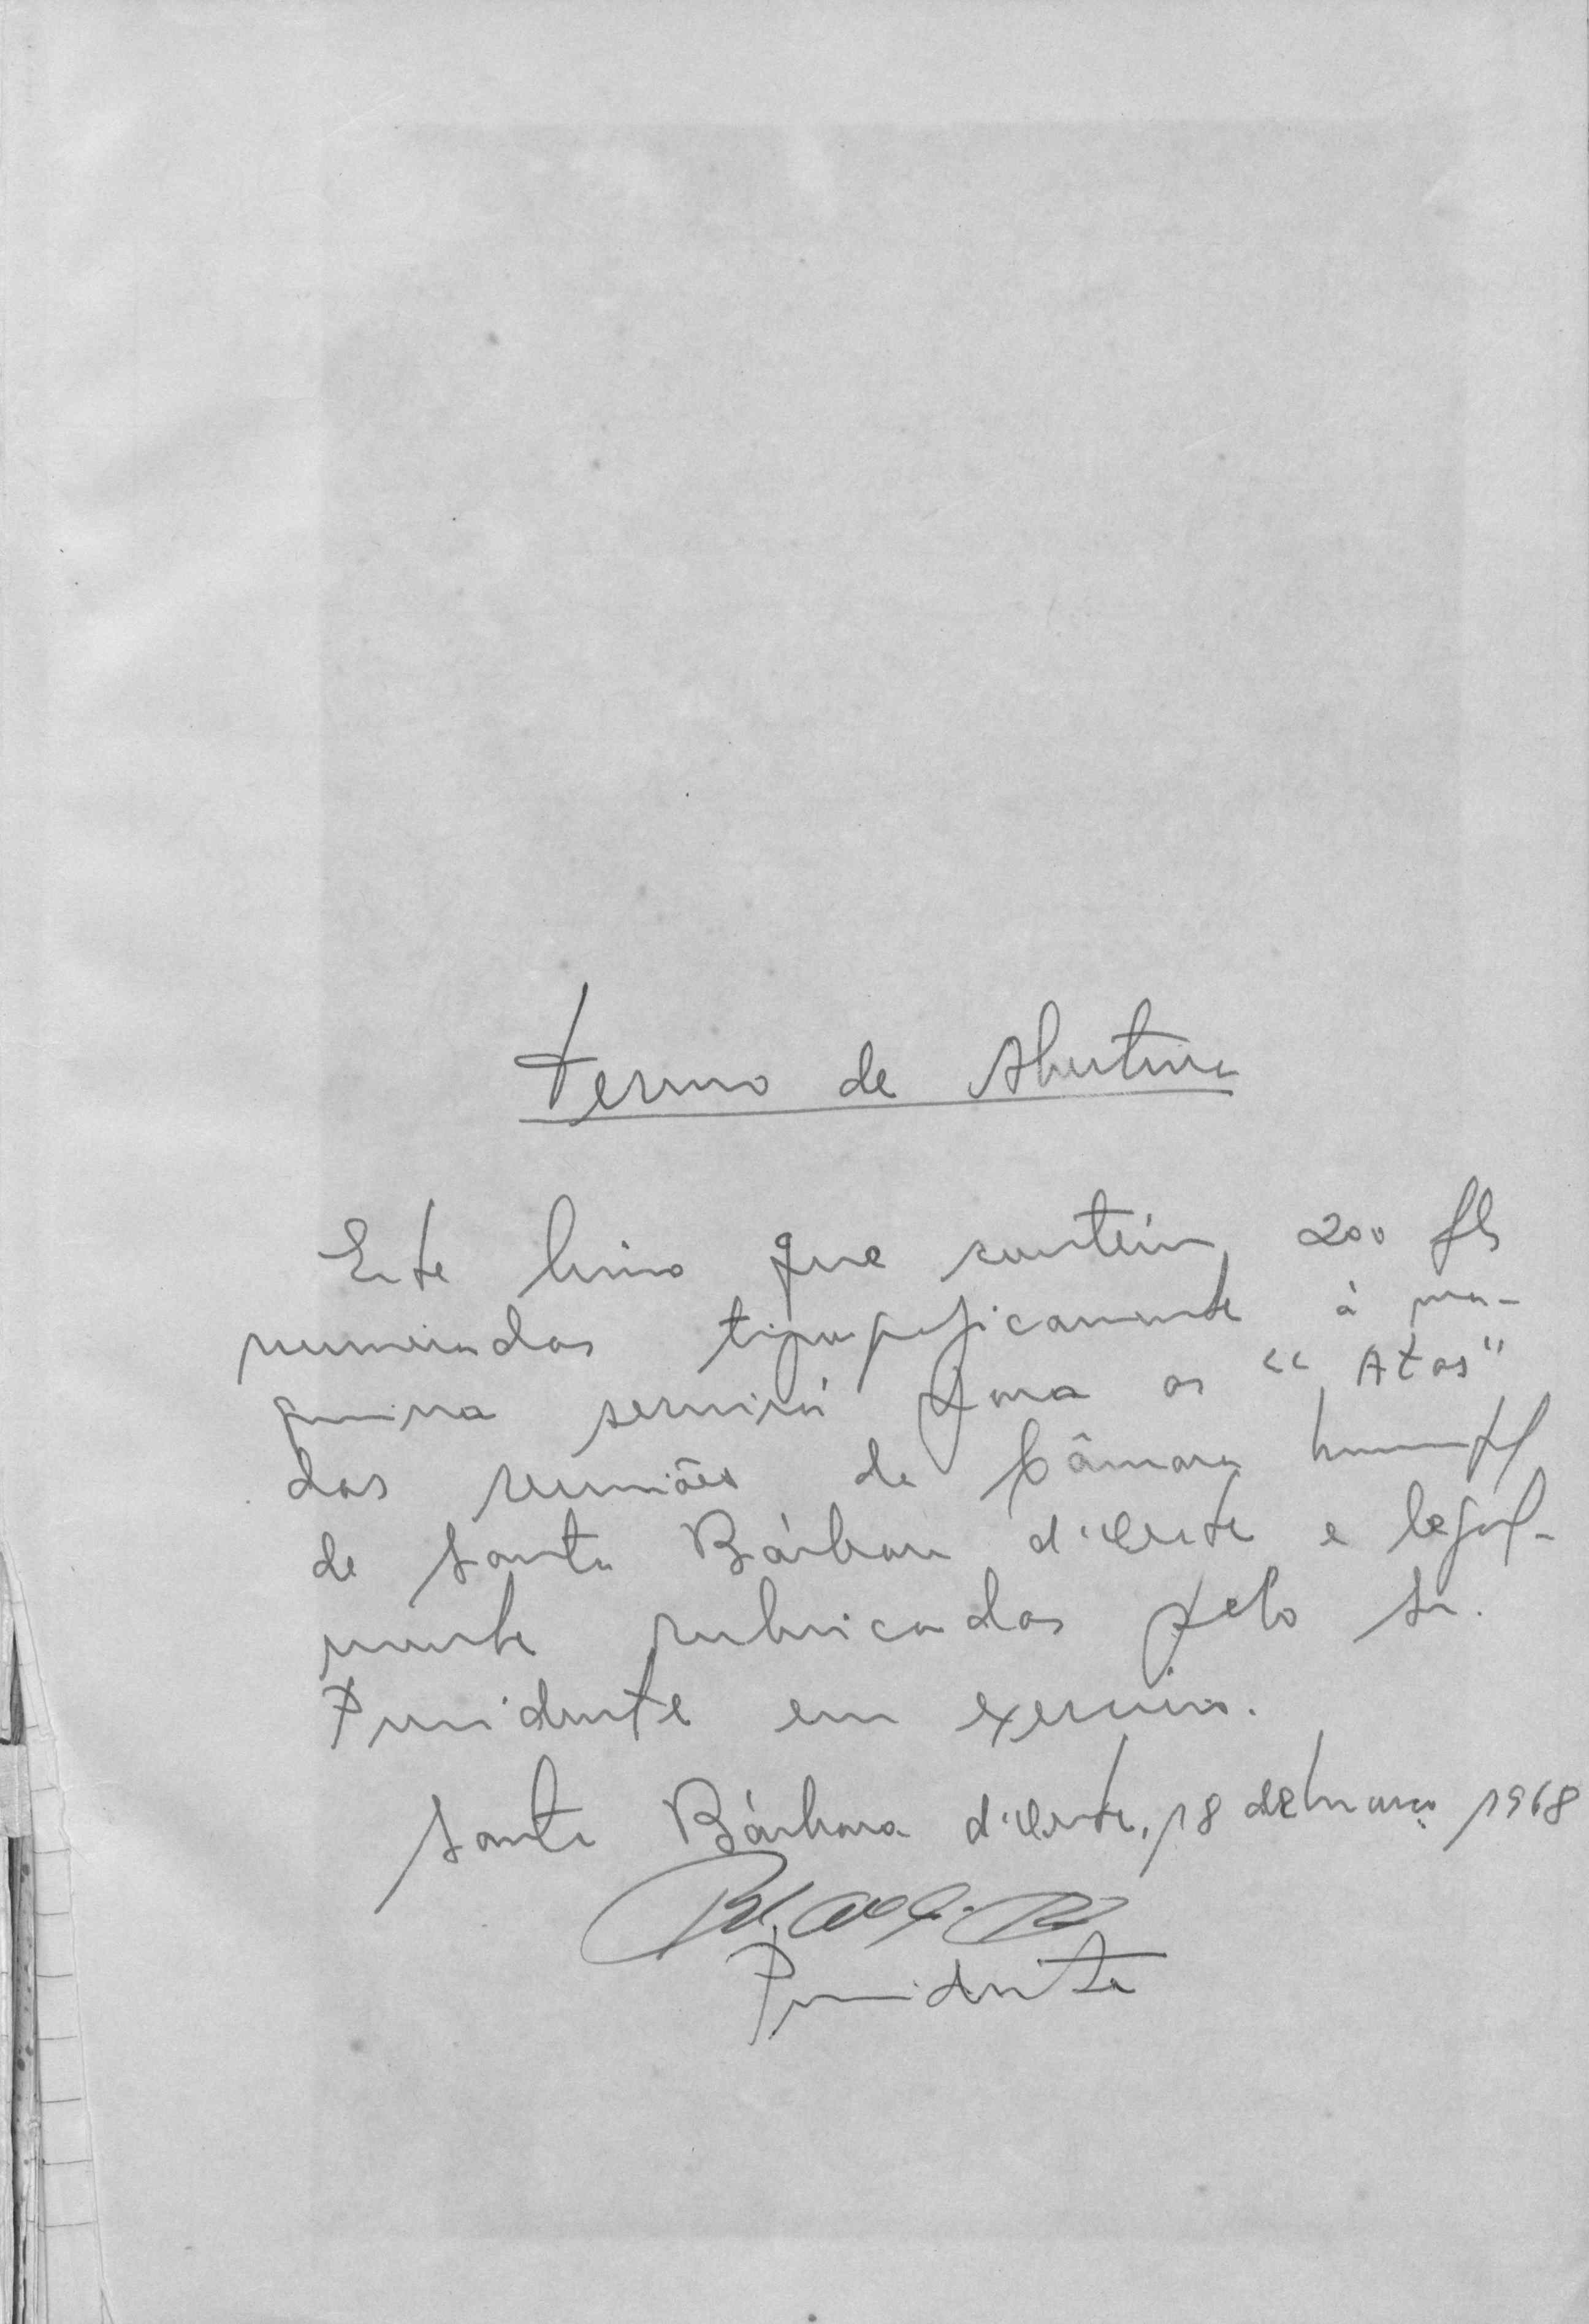 Termo de Abertura
Este livro que contém 200 fls
numeradas tipograficamente à má-
quina servirá para as "Atas"
das reuniões da Câmara Municipal
de Santa Bárbara d'Oeste e legal-
mente rubricadas pelo Sr.
Presidente em exercício.
Santa Bárbara d'Oeste, 18 de março 1968
Presidente